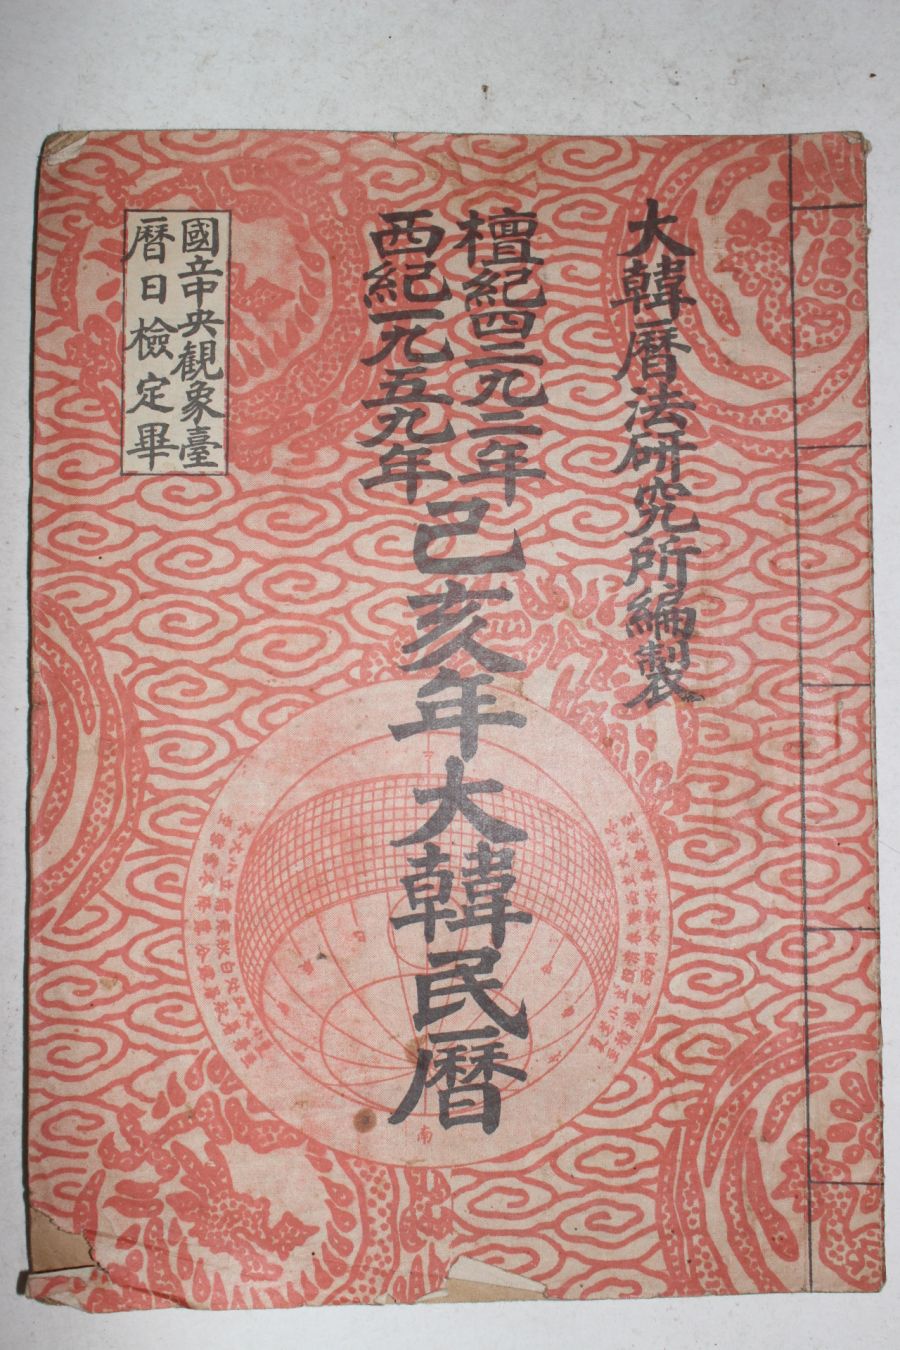 大韓曆法研究所編製
檀紀四二九二年
西紀一九五九年
己亥年大韓民曆
國立中央観象臺
曆日檢定畢
南